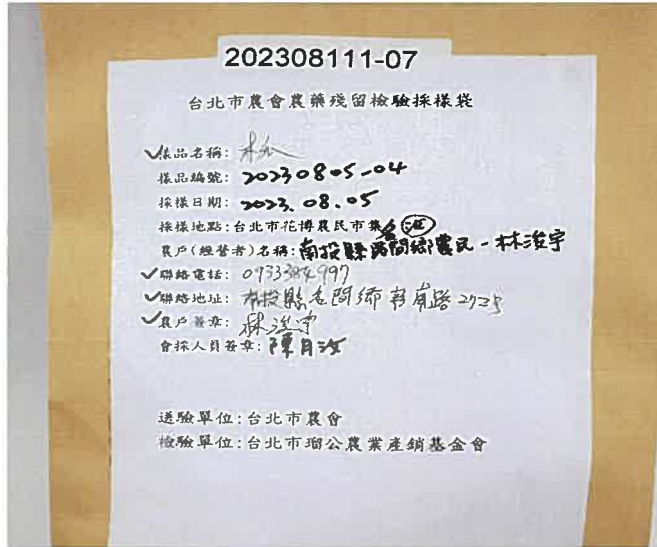 202308111-07
台北市農會農藥殘留檢驗採樣袋
✓樣品名稱:
樣品編號: 20230805-04
採樣日期: 2023.08.05
採樣地點:台北市花博農民市集
農戶(經營者)名稱:南投縣名間鄉農民-林浚宇
✓聯絡電話: 0933384997
✓聯絡地址: 南投縣名間鄉彰南路
✓農戶簽章: 林浚宇
會採人員簽章: 陳月汝
送驗單位:台北市農會
檢驗單位:台北市瑠公農業產銷基金會